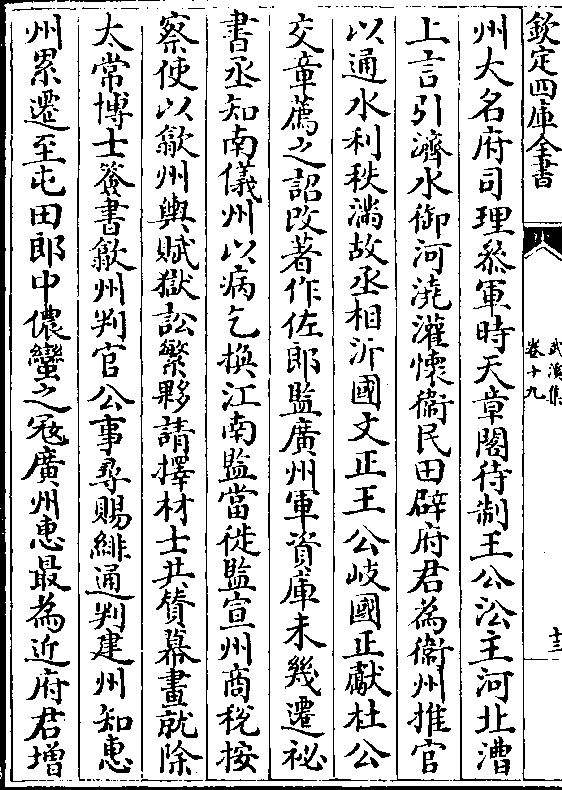 欽定四庫全書
武溪集
卷十九
十三
州大名府司理叅軍時天章閣待制王公㳂主河北漕
上言引濟水御河澆灌懷衞民田辟府君為衞州推官
以通水利秩滿故丞相沂國文正王公岐國正獻杜公
交章薦之詔改著作佐郎監廣州軍資庫未幾遷祕
書丞知南儀州以病乞換江南監當徙監宣州商稅按
察使以歙州輿賦獄訟繁夥請擇材士共賛幕畫就除
太常博士簽書歙州判官公事尋賜緋通判建州知惠
州累遷至屯田郎中儂蠻之冦廣州惠最為近府君增